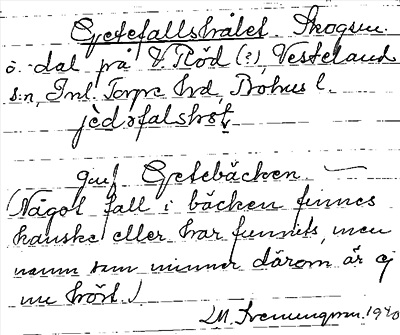 Getefallshålet. Skogsm.
o. dal på V. Röd (?), Vesteland
s:n, Inl. Torpe hd, Bohus l.
jèdəfalshoł
Getebäcken.
(Något fall i bäcken finnes
kanske eller har funnits, men
namn som minner därom är ej
nu hört.)
1940